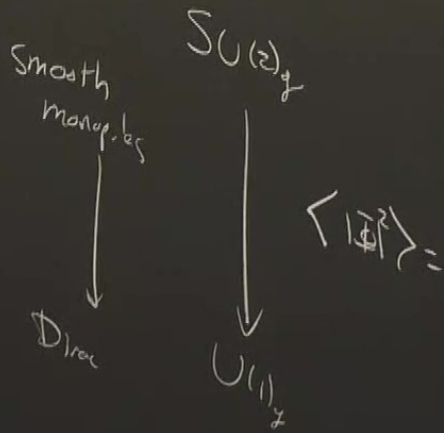 Smooth
monopoles
Dirac
SU(2)_g
⟨|Φ|²⟩ =
U(1)_y